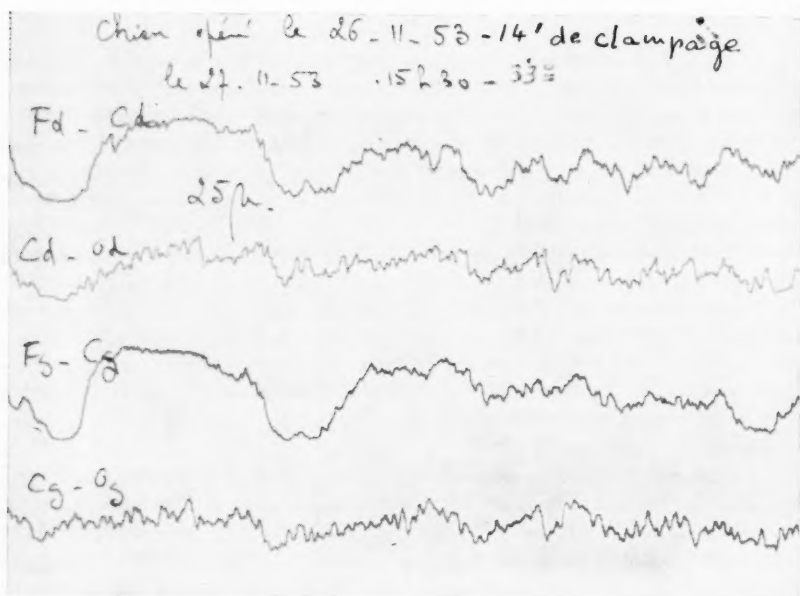 Chien opéré le 26-11-53-14' de clampage
le 27.11.53 .15h30 - 33
Fd - Cd
25μ.
Cd - Od
Fg - Cg
Cg - Og